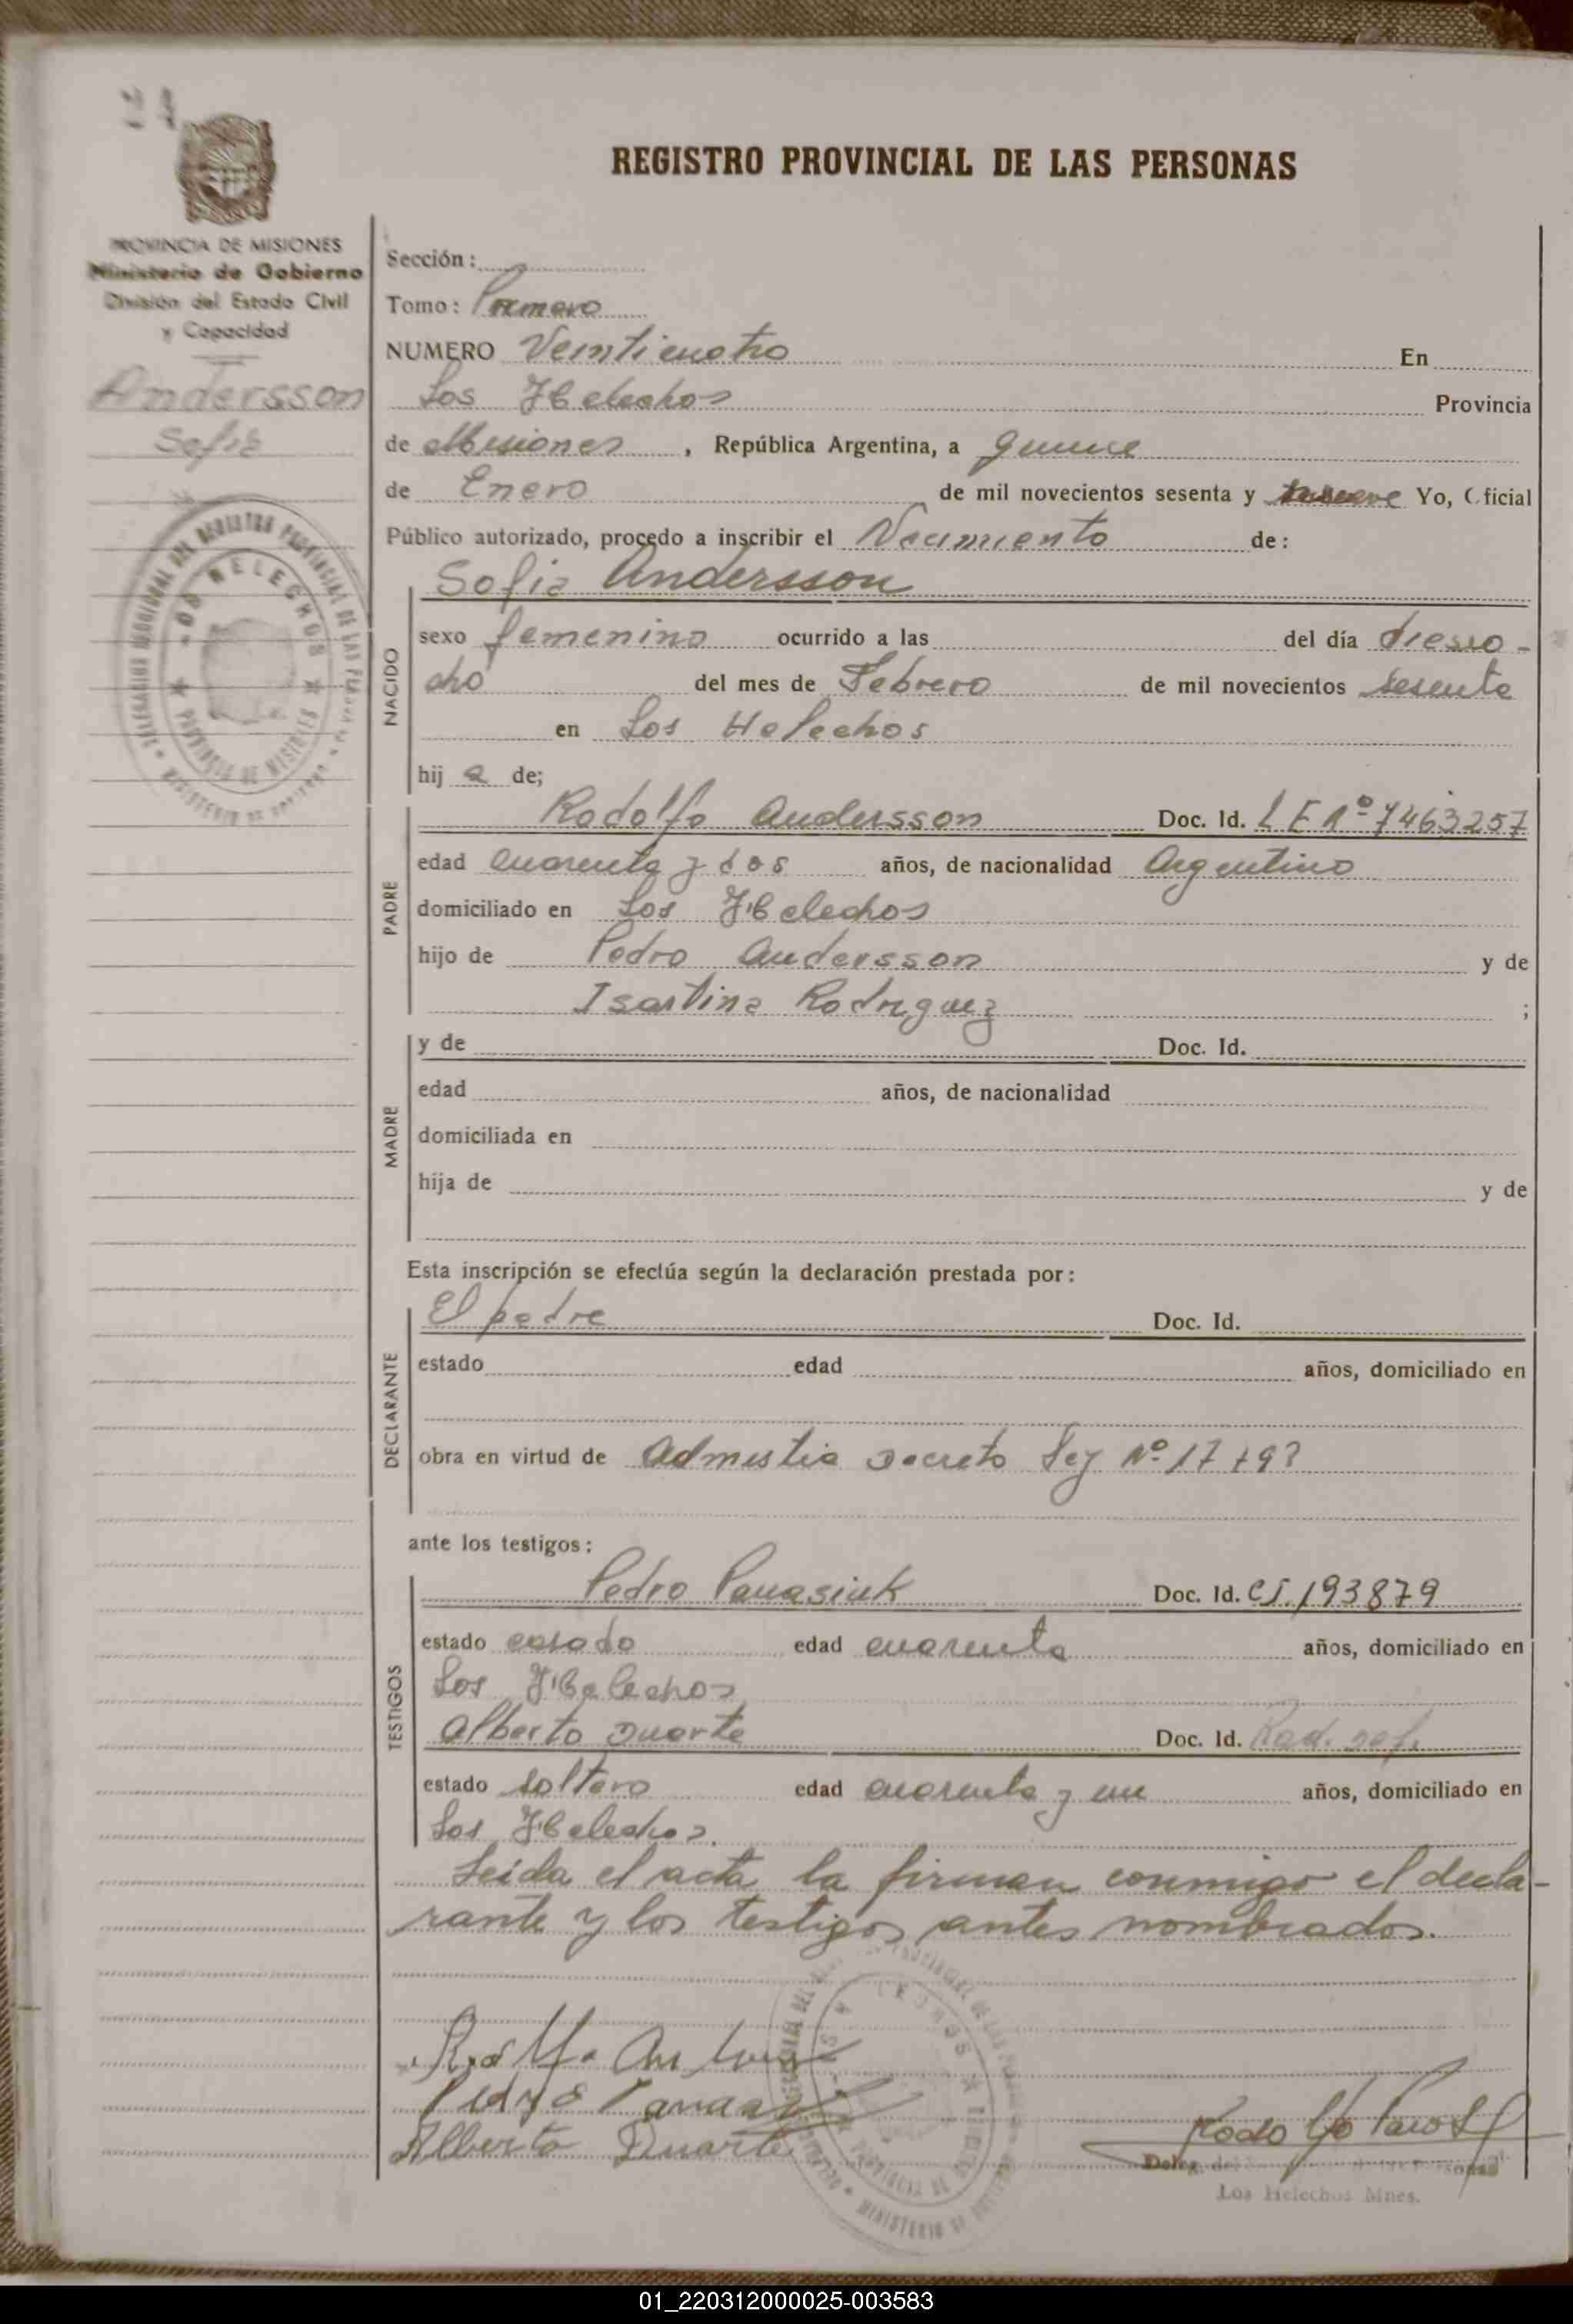 24
REGISTRO PROVINCIAL DE LAS PERSONAS
PROVINCIA DE MISIONES
Ministerio de Gobierno
División del Estado Civil
y Capacidad
Andersson
Sofia
Sección:
Tomo: Primero
NUMERO Veinticuatro En
Los Helechos Provincia
de Misiones, República Argentina, a quince
de Enero de mil novecientos sesenta y nueve Yo, Oficial
Público autorizado, procedo a inscribir el Nacimiento de:
Sofia Andersson
NACIDO
sexo femenino ocurrido a las del día diesio-
cho del mes de Febrero de mil novecientos sesenta
en Los Helechos
hij a de;
PADRE
Rodolfo Andersson Doc. Id. L E Nº 7463257
edad cuarenta y dos años, de nacionalidad Argentino
domiciliado en Los Helechos
hijo de Pedro Andersson y de
Rodriguez ;
MADRE
y de Doc. Id.
edad años, de nacionalidad
domiciliada en
hija de y de
Esta inscripción se efectúa según la declaración prestada por:
DECLARANTE
El padre Doc. Id.
estado edad años, domiciliado en
obra en virtud de Admistia Decreto Ley Nº
ante los testigos:
TESTIGOS
Pedro Panasiuk Doc. Id. CI. 193879
estado casado edad cuarenta años, domiciliado en
Los Helechos
Alberto Duarte Doc. Id.
estado soltero edad cuarenta y un años, domiciliado en
Los Helechos.
Leída el acta, la firman conmigo el decla-
rante y los testigos antes nombrados.
Alberto Duarte
Los Helechos Mnes.
01_220312000025-003583